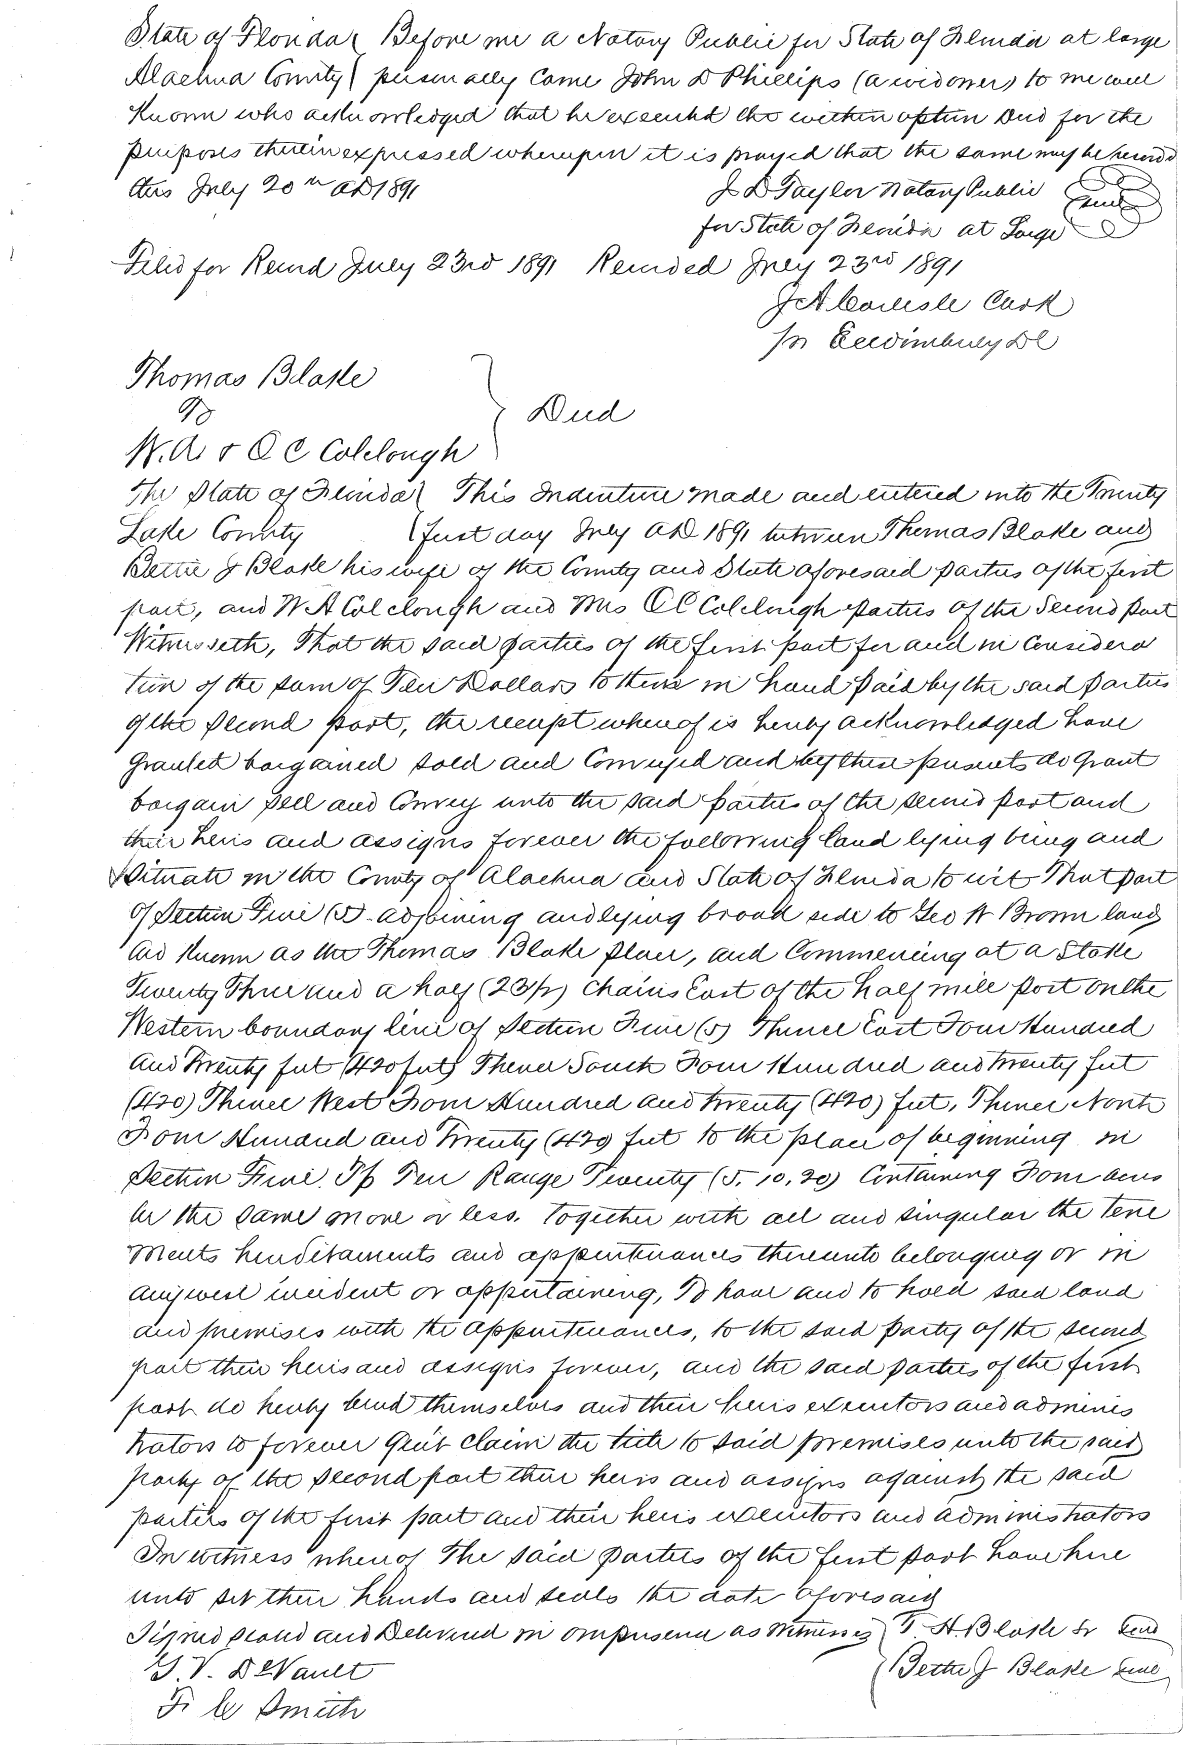 State of Florida Before me a Notary Public for State of Florida at large
Alachua County personally came John D Phillips (a widower) to me well
Known who acknowledged that he executed the within option Deed for the
purposes therein expressed whereupon it is prayed that the same may be record
this July 20th AD 1891 J D Taylor Notary Public Seal
for State of Florida at Large
Filed for Record July 23rd 1891 Recorded July 23rd 1891
J A Carlisle Clerk
pr DC
Thomas Blake
To Deed
W. A. & O C Colclough
The State of Florida This Indenture made and entered into the Twenty
Lake County first day July AD 1891 between Thomas Blake and
Bettie J Blake his wife of the County and State aforesaid parties of the first
part, and W A Colclough and Mrs O C Colclough parties of the Second part
Witnesseth, That the said parties of the first part for and in Considera
tion of the sum of Ten Dollars to them in hand paid by the said parties
of the second part, the receipt whereof is hereby acknowledged have
granted bargained sold and Conveyed and by these presents do grant
bargain sell and Convey unto the said parties of the second part and
their heirs and assigns forever the following land lying being and
Situate in the County of Alachua and State of Florida to wit That part
of Section Five (5) adjoining and lying broad side to Geo W Brown land
and Known as the Thomas Blake place, and Commencing at a Stake
Twenty Three and a half (23½) Chains East of the half mile post on the
Western boundary line of Section Five (5) Thence East Four Hundred
and Twenty feet (420 feet) Thence South Four Hundred and twenty feet
(420) Thence West Four Hundred and twenty (420) feet, Thence North
Four Hundred and Twenty (420) feet to the place of beginning in
Section Five Tp Ten Range Twenty (5, 10, 20) Containing Four acres
be the same more or less. Together with all and singular the tene
ments hereditaments and appurtenances thereunto belonging or in
anywise incident or appertaining, To have and to hold said land
and premises with the appurtenances, to the said party of the second
part their heirs and assigns forever, and the said parties of the first
part do hereby bind themselves and their heirs executors and adminis
trators to forever Quit claim the title to said premises unto the said
party of the second part their heirs and assigns against the said
parties of the first part and their heirs executors and administrators
In witness whereof The said parties of the first part have here
unto set their hands and seals the date aforesaid
Signed sealed and Delivered in our presence as witnesses T. H. Blake Sr Seal
G. V. DeVault Bettie J Blake Seal
F. C Smith